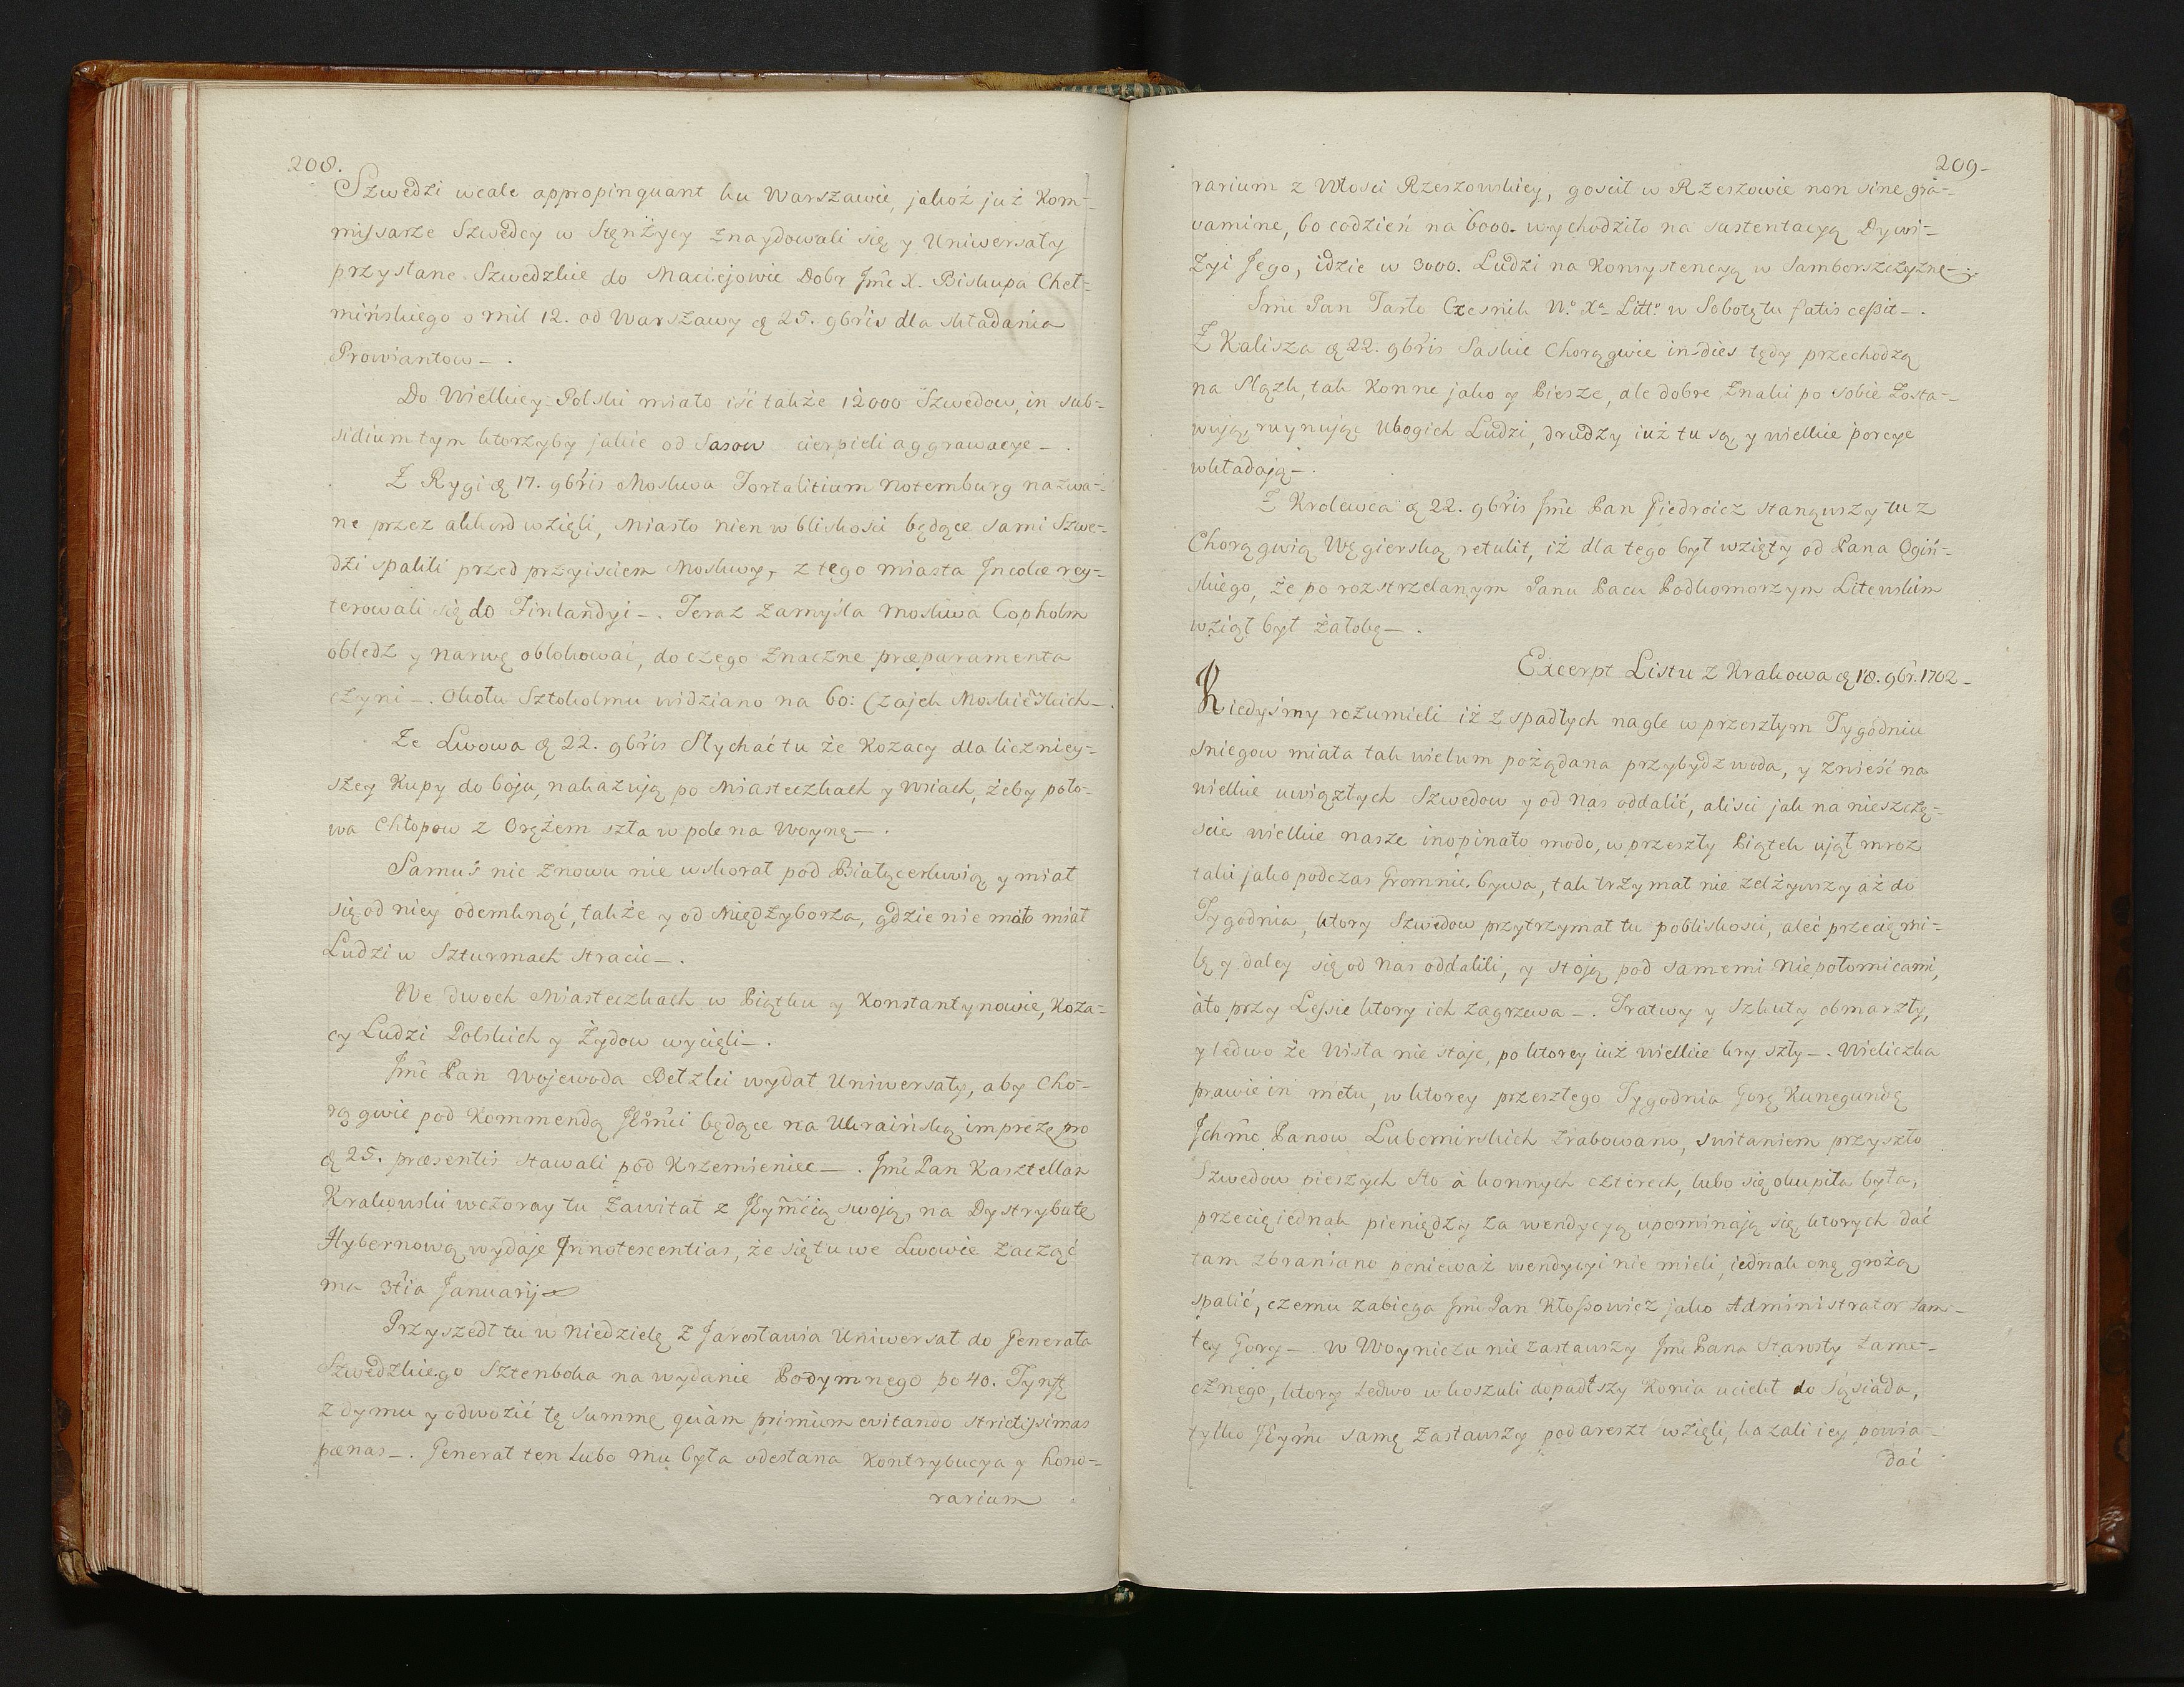 208.
Szwedzi wcale appropinquant ku Warszawie, jakoż już Kom-
missarze Szwedcy w Stężycy znaydowali się y Uniwersały
przysłane Szwedzkie do Maciejowic Dobr Jmć X. Biskupa Cheł-
mińskiego o mil 12. od Warszawy d 25. 9bris dla składania
Prowiantow -.
Do Wielkiey-Polski miało iść także 12000 Szwedow, in sub-
sidium tym ktorzyby jakie od Sasow cierpieli aggrawacye -.
Z Rygi d 17. 9bris Moskwa Fortalitium Notemburg nazwa-
ne przez akkord wzięli, Miasto Nien w bliskosci będące sami Szwe-
dzi spalili przed przyisciem Moskwy, z tego miasta Incolæ rey-
terowali się do Finlandyi -. Teraz zamyśla Moskwa Copholm
obledz y Narwę oblokować, do czego znaczne præparamenta
czyni -. Około Sztokolmu widziano na 60: Czajek Moskiewskich -.
Ze Lwowa d 22. 9bris Słychać tu że Kozacy dla liczniey-
szey Kupy do boju, nakazują po Miasteczkach y Wsiach, żeby poło-
wa Chłopow z Orężem szła w pole na Woynę -.
Samuś nic znowu nie wskorał pod Białącerkwią y miał
się od niey odemknąć, także y od Międzyborza, gdzie nie mało miał
Ludzi w Szturmach stracic -.
We dwoch Miasteczkach w Piątku y Konstantynowie, Koza-
cy Ludzi Polskich y Żydow wycięli -.
Jmć Pan Wojewoda Bełzki wydał Uniwersały, aby Cho-
rągwie pod Kommendą JKmci będące na Ukraińską imprezę pro
d 25. præsentis stawali pod Krzemieniec -. Jmć Pan Kasztellan
Krakowski wczoray tu zawitał z JEymćią swoją, na Dystrybutę
Hybernową wydaje Innotescentias, że się tu we Lwowie zacząć
ma 3tia Januarij
Przyszedł tu w Niedzielę z Jarosławia Uniwersał do Generała
Szwedzkiego Sztenboka na wydanie Podymnego po 40. Tynfę
z dymu y odwozić tę summę quam primum evitando strictissimas
pænas -. Generał ten lubo mu była odesłana Kontrybucya y hono-
rarium
209-
rarium z Włosci Rzeszowskiey, goscił w Rzeszowie non sine gra-
vamine, bo codzień na 6000. wychodziło na sustentacyą Dywi-
zyi Jego, idzie w 3000. Ludzi na Konsystencyą w Samborszczyznę -.
Jmć Pan Tarło Czesnik W.o X.a Litt.o w Sobotę tu fatis ceßit -.
Z Kalisza d 22. 9bris Saskie Chorągwie in dies tędy przechodzą
na Sląsk, tak Konne jako y Piesze, ale dobre znaki po sobie zosta-
wują, ruynując Ubogich Ludzi, drudzy iuż tu są, y wielkie porcye
wkładają -.
Z Krolewca d 22. 9bris Jmć Pan Giedroicz stanąwszy tu z
Chorągwią Węgierską retulit, iż dla tego był wzięty od Pana Ogiń-
skiego, że po rozstrzelanym Panu Pacu Podkomorzym Litewskim
wziął był żałobę -.
Excerpt Listu z Krakowa d 18. 9br. 1702 -
Kiedyśmy rozumieli iż z spadłych nagle w przeszłym Tygodniu
sniegow miała tak wielum pożądana przybydz woda, y znieść na
wielkie uwięzłych Szwedow y od nas oddalić, alisci jak na nieszczę-
scie wielkie nasze inopinato modo, w przeszły Piątek ujął mroz
taki jako podczas Gromnic bywa, tak trzymał nie zelżywszy aż do
Tygodnia, ktory Szwedow przytrzymał tu pobliskosci, aleć przecię mi-
lę y daley się od nas oddalili, y stoją pod samemi Niepołomicami,
ato przy Lessie ktory ich zagrzewa -. Tratwy y Szkuty obmarzły,
y ledwo że Wisła nie staje, po ktorey iuż wielkie kry szły -. Wieliczka
prawie in metu, w ktorey przeszłego Tygodnia Gorę Kunegundę
Ichmć Panow Lubomirskich zrabowano, switaniem przyszło
Szwedow pieszych sto à konnych czterech, lubo się okupiła była,
przecię iednak pieniędzy za wendycyą upominają się ktorych dać
tam zbraniano ponieważ wendycyi nie mieli, iednak onę grożą
spalić, czemu zabiega Jmć Pan Kłossowicz jako Administrator tam-
tey Gory -. w Woyniczu nie zastawszy Jmć Pana Starosty tame-
cznego, ktory ledwo w koszuli dopadłszy Konia uciekł do Sąsiada,
tylko JEymć samę zastawszy pod areszt wzięli, kazali iey powia-
dać